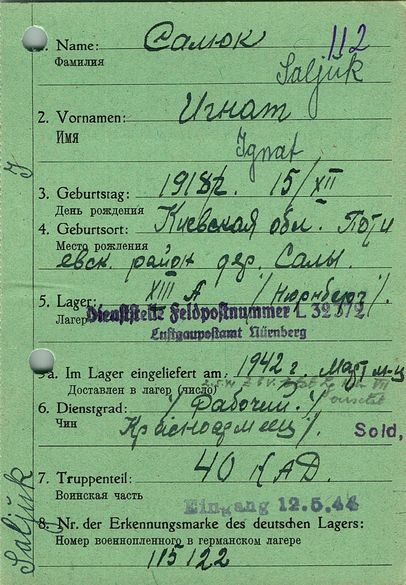 112
1. Name: Салюк
Фамилия
Saljuk
2. Vornamen: Игнат
Имя
Ignat
3. Geburtstag: 1918р. 15/XII
День рождения
4. Geburtsort: Киевская обл. Поти
Место рожления
евск. район дер. Салы.
5. Lager: XIII A /Нюрнберг/.
Лагерь
Dienststelle Feldpostnummer L 32872
Luftgaupostamt Nürnberg
5a. Im Lager eingeliefert am: 1942 г. Март м-ц
Доставлен в лагерь (число)
6. Dienstgrad: /Рабочий./
Чин
Красноармеец/.
Sold.
7. Truppenteil: 40 КАД.
Воинская часть
Eingang 12.5.44
8. Nr. der Erkennungsmarke des deutschen Lagers:
Номер военнопленного в германском лагере
115122
Saljuk
J